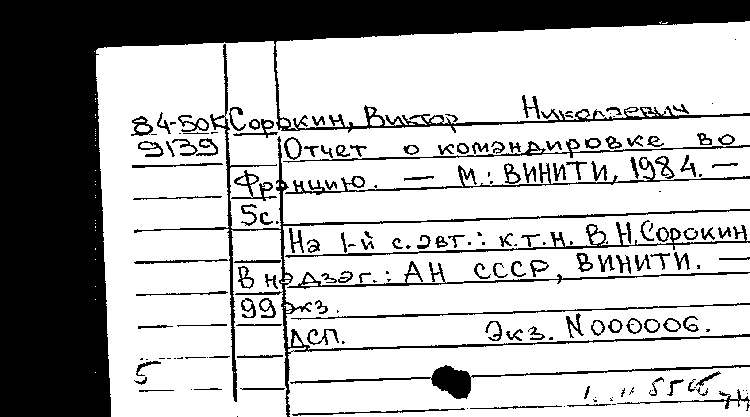 84-50К Сорокин, Виктор Николаевич
9139 Отчет о командировке во
Францию. — М.: ВИНИТИ, 1984. —
5с.
На 1-й с. авт.: к.т.н. В.Н.Сорокин
В надзаг.: АН СССР, ВИНИТИ. —
99 экз.
ДСП. Экз. N000006.
5